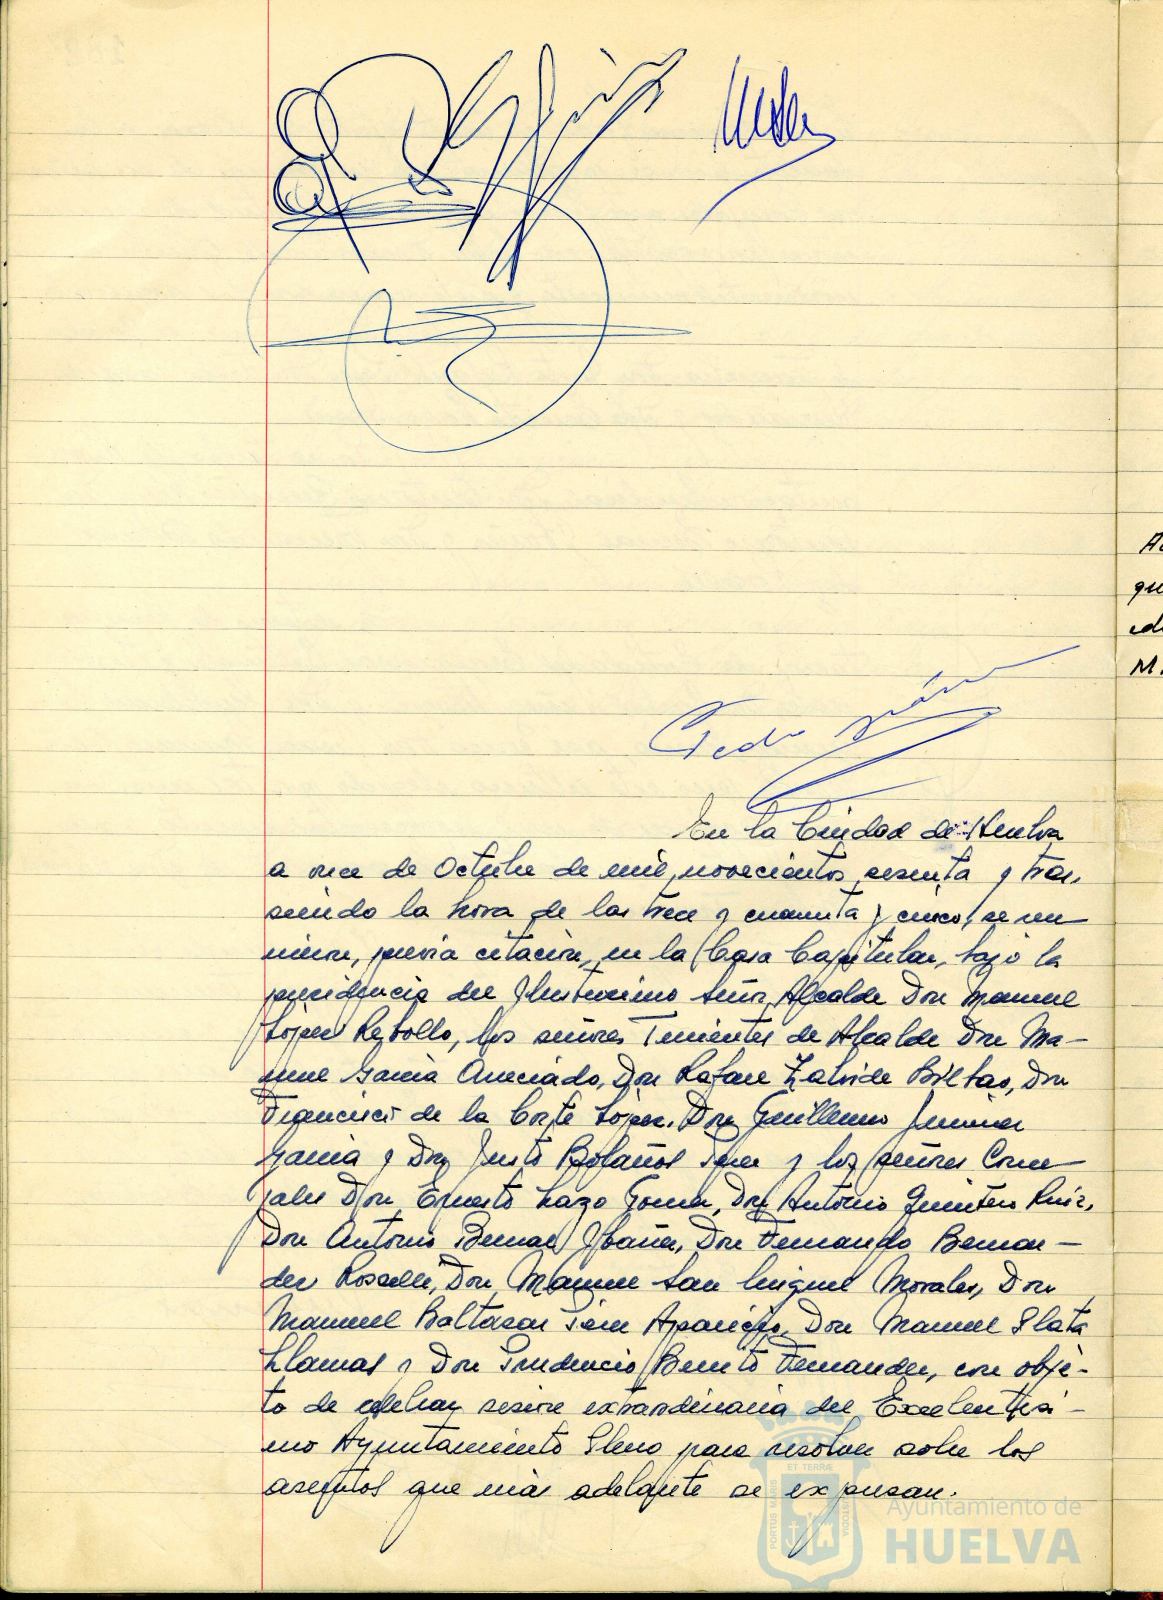 Pedro
En la Ciudad de Huelva
a once de Octubre de mil novecientos sesenta y tres,
siendo la hora de las trece y cuarenta y cinco, se reu
nieron, previa citación, en la Casa Capitular, bajo la
presidencia del Ilustrísimo Señor Alcalde Don Manuel
López Rebollo, los señores Tenientes de Alcalde Don Ma-
nuel García Aneciado, Don Rafael Zalvide Bilbao, Don
Francisco de la Corte López, Don Guillermo Jiménez
García y Don Justo Bolaños Pérez y los señores Conce
jales Don Ernesto Lazo Gómez, Don Antonio Quintero Ruíz,
Don Antonio Bernal Ibáñez, Don Fernando Bernan-
dez Rosselló, Don Manuel San Miguel Morales, Don
Manuel Baltasar Pérez Aparicio, Don Manuel Plata
Llamas y Don Prudencio Benito Fernandez, con obje-
to de celebrar sesión extraordinaria del Excelentísi-
mo Ayuntamiento Pleno para resolver sobre los
asuntos que más adelante se expresan.
PORTUS MARIS ET TERRÆ CUSTODIA
Ayuntamiento de
HUELVA
qu
M.